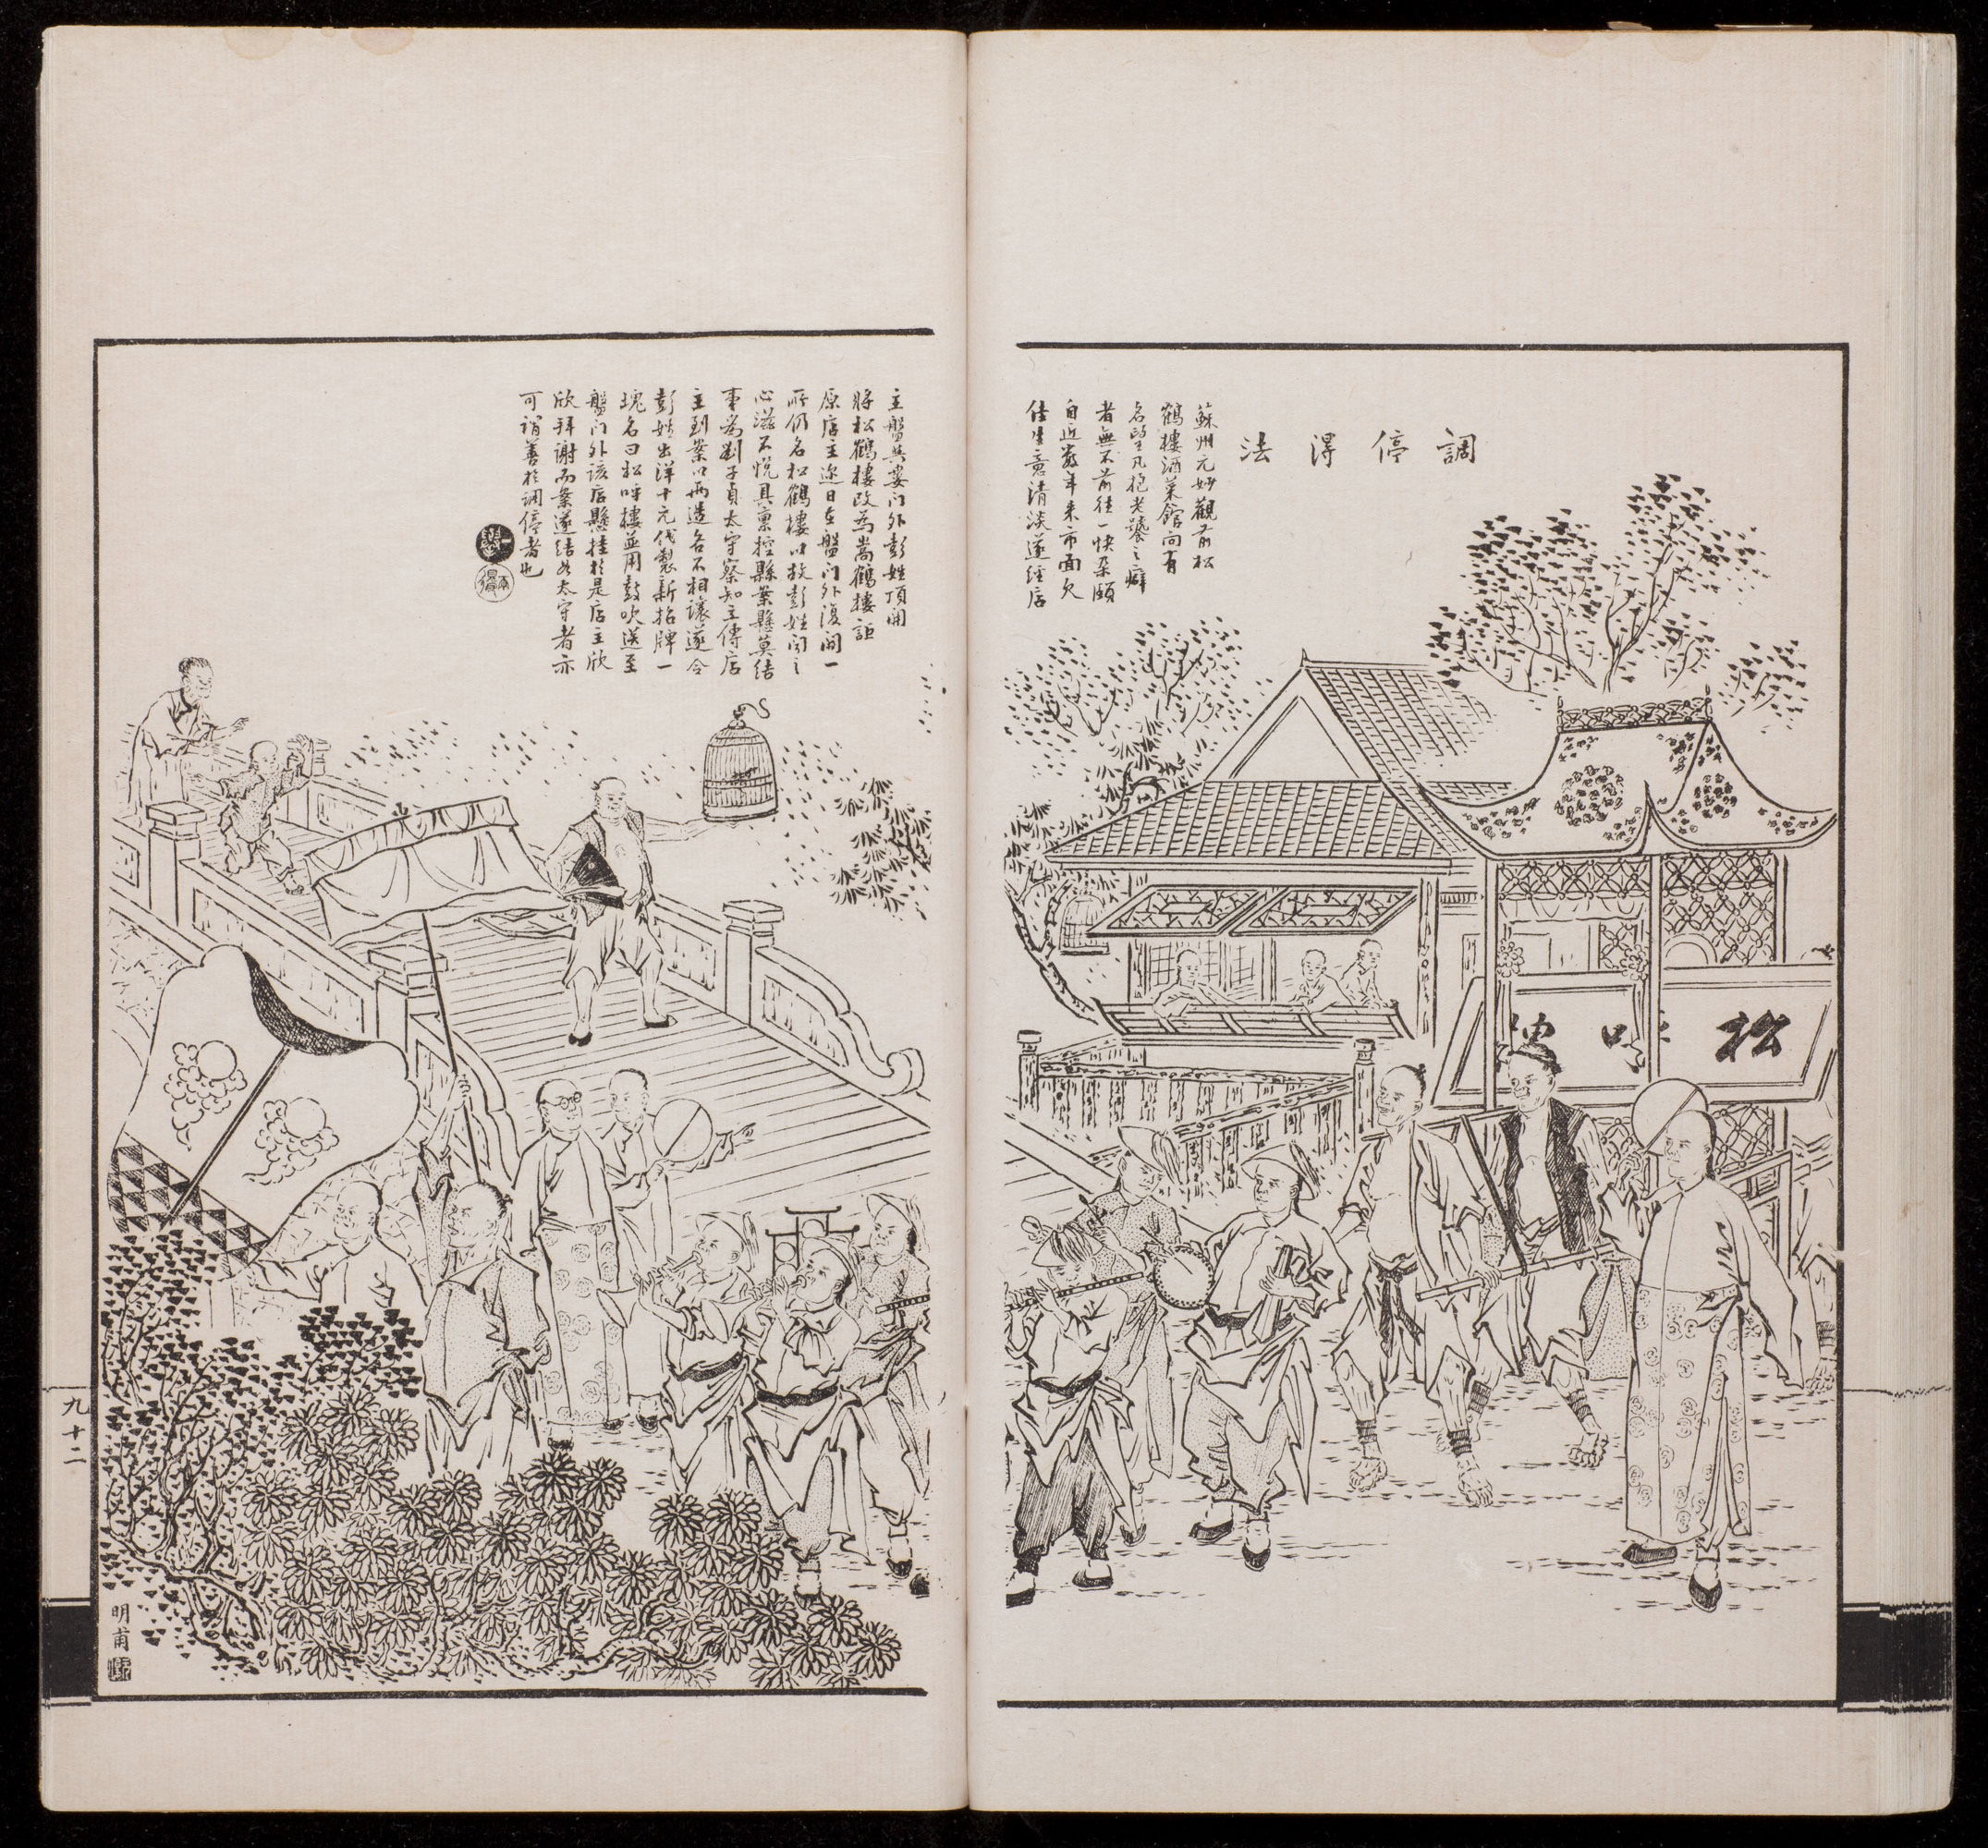 調停得法
蘇州元妙觀前松
鶴樓酒菜館向有
名望凡抱老饕之癖
者無不前往一快朵頤
自近數年來市面欠
佳生意清淡遂經店
主盤與婁門外彭姓頂開
將松鶴樓改為嵩鶴樓詎
原店主邇日在盤門外復開一
所仍名松鶴樓以故彭姓聞之
心滋不悅具稟控縣案懸莫結
事為劉子貞太守察知立傳店
主到案以兩造各不相讓遂令
彭姓出洋十元代製新招牌一
塊名曰松呼樓並用鼓吹送至
盤門外該店懸挂於是店主欣
欣拜謝而案遂結如太守者亦
可謂善於調停者也
松呼樓
九十二
明甫